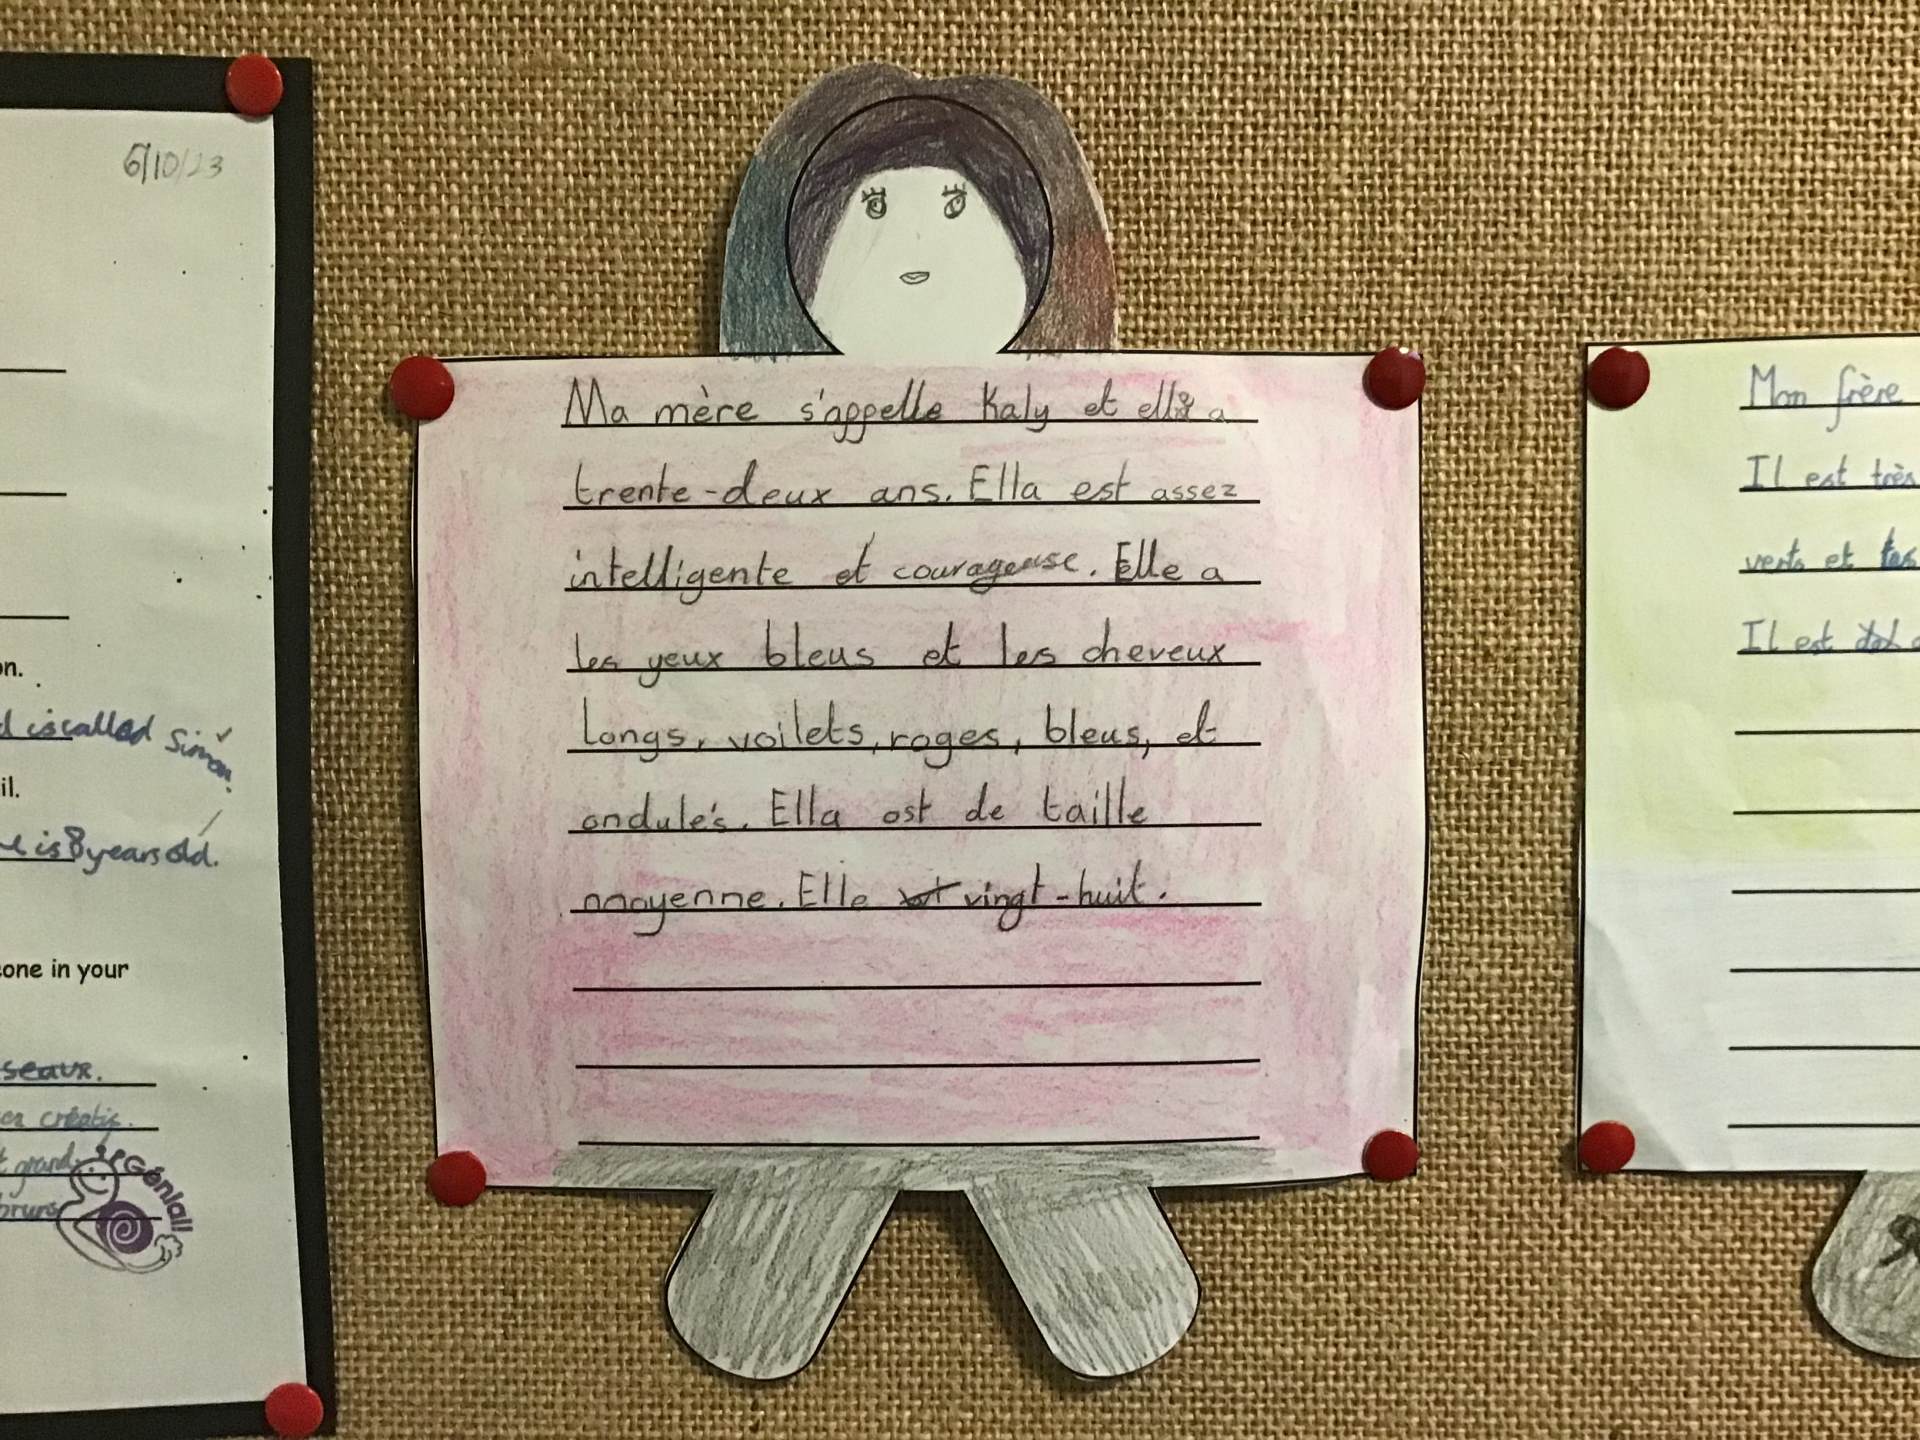 6/10/23
on.
d is called Simon.
il.
e is 8 years old.
eone in your
seaux.
créatif.
grand
bruns
Génial!
Ma mère s'appelle Kaly et elle a
trente-deux ans. Ella est assez
intelligente et courageuse. Elle a
les yeux bleus et les cheveux
longs, voilets, roges, bleus, et
ondulés. Ella est de taille
moyenne. Elle vingt-huit.
Mon frère
Il est très
verts et les
Il est